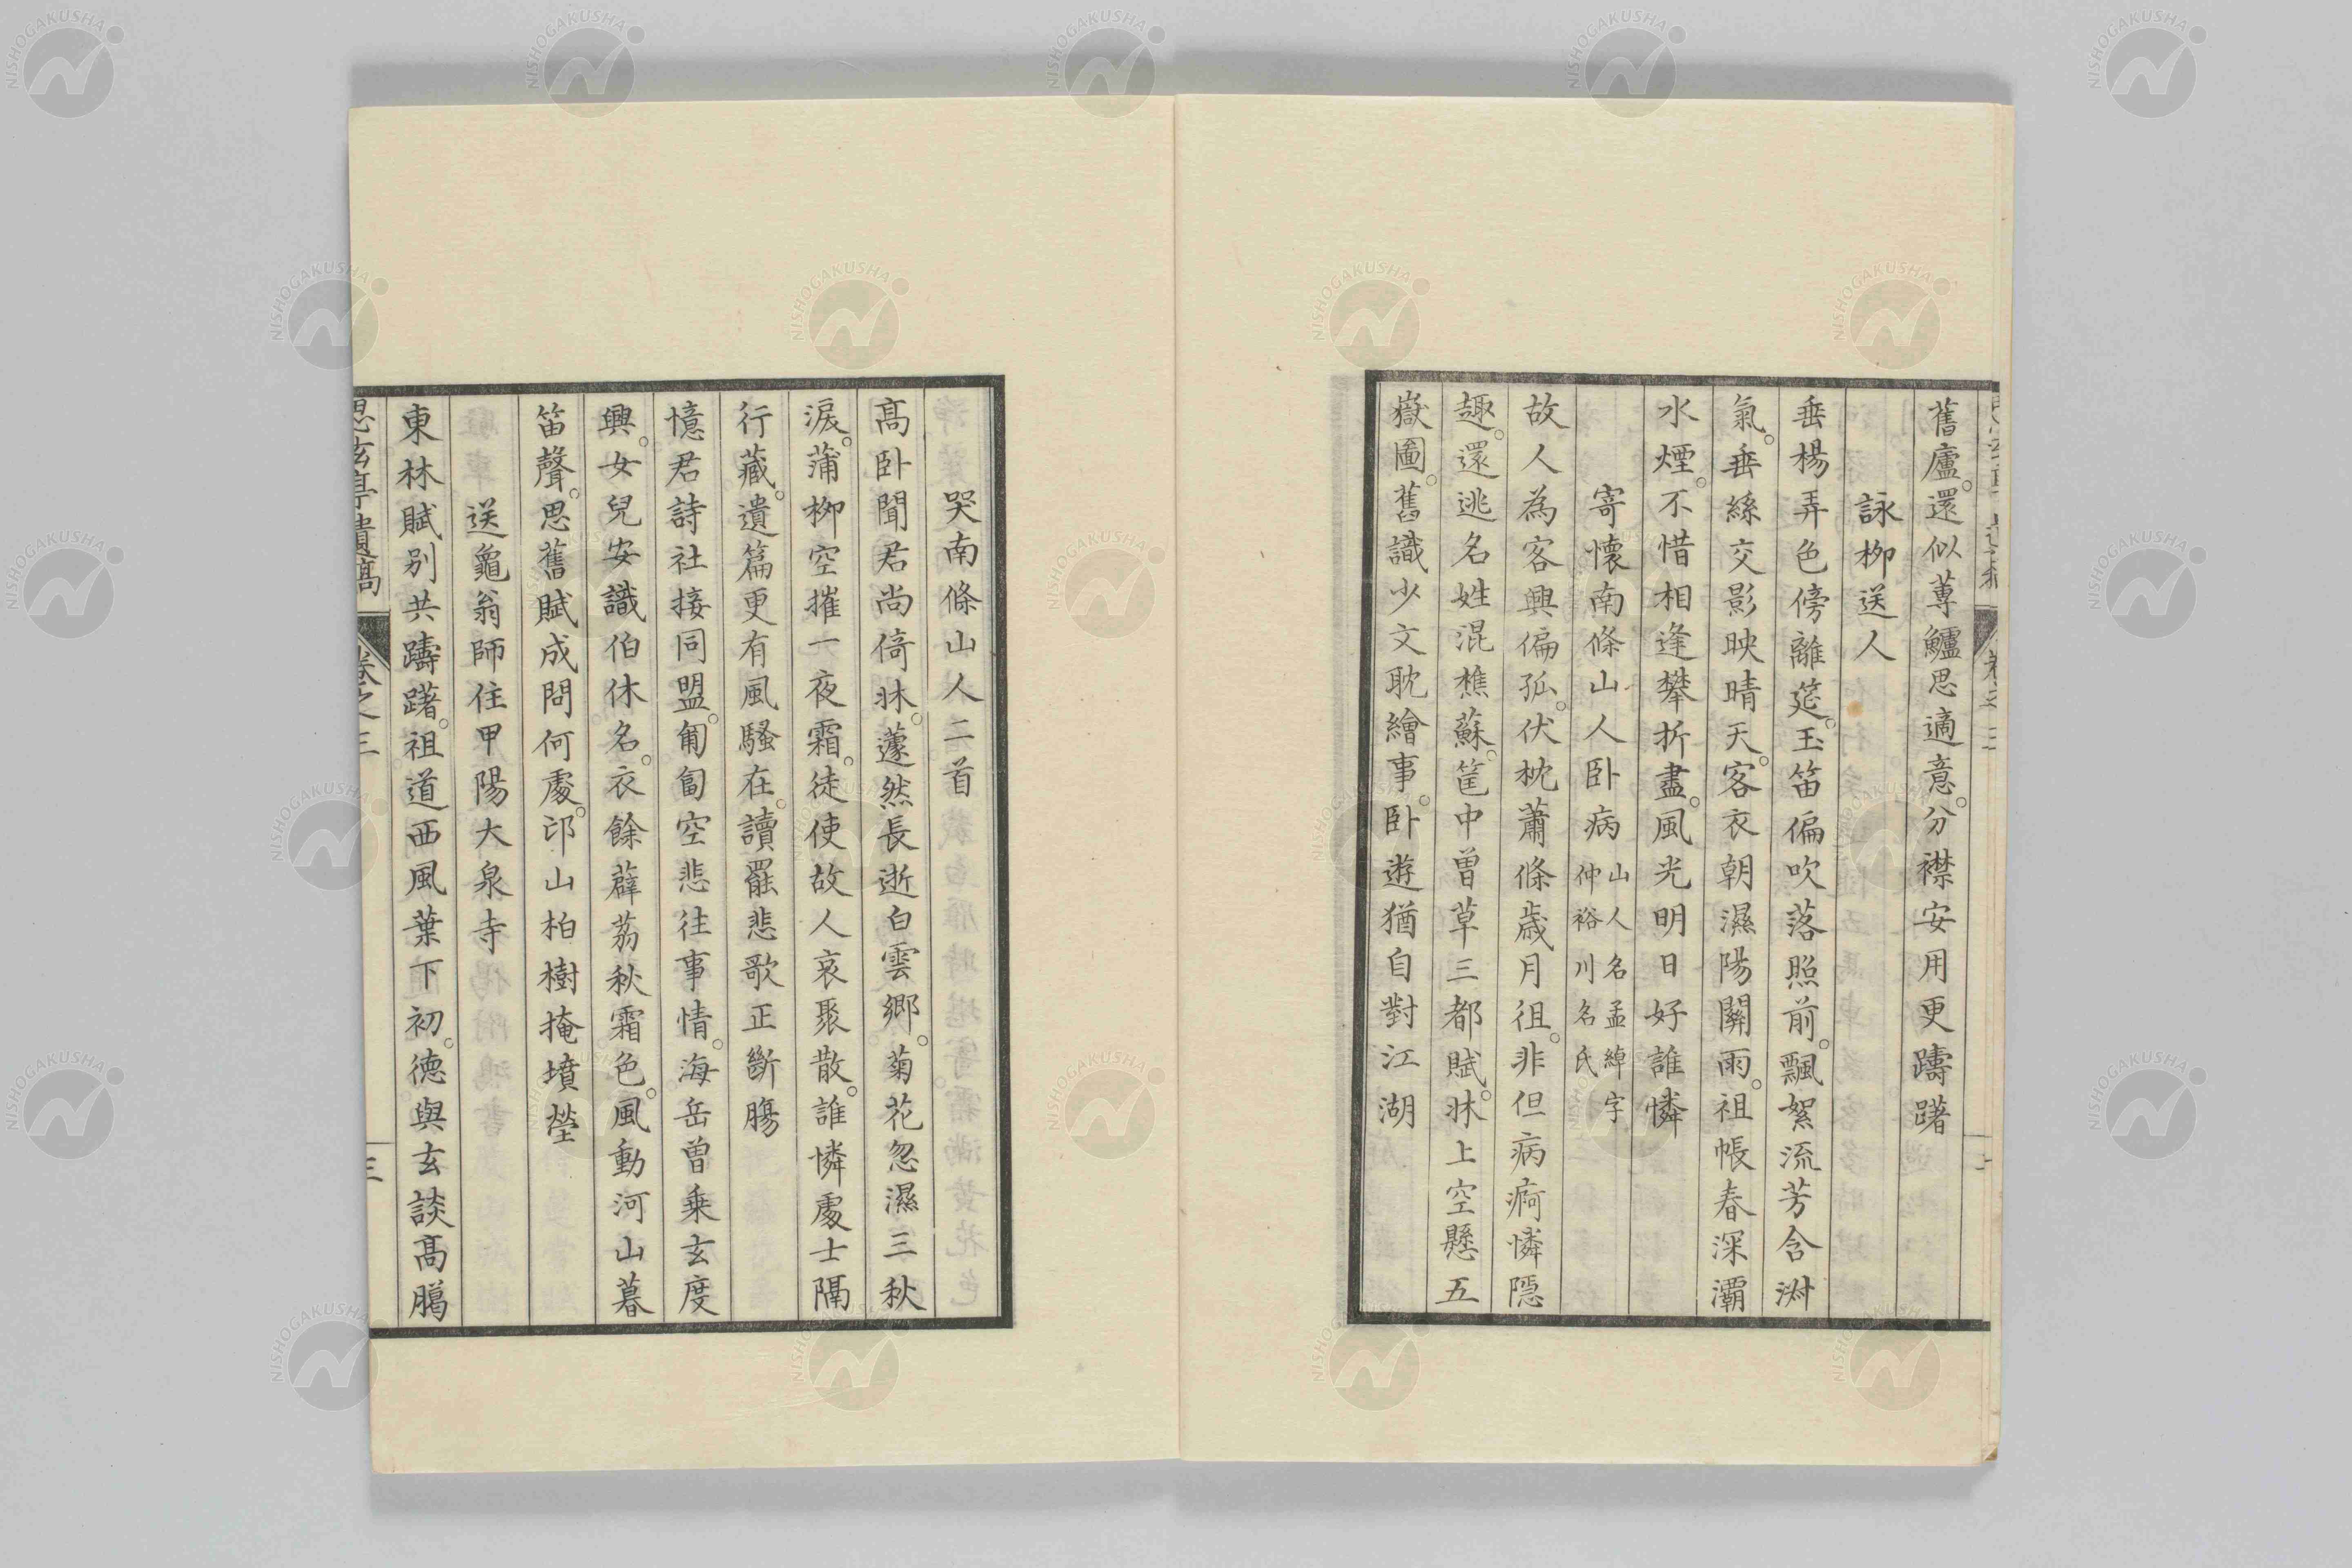 舊廬。還似蓴鱸思適意。分襟安用更躊躇
詠栁送人
垂楊弄色傍離筵。玉笛偏吹落照前。飄絮流芳含淑
氣。垂絲交影映晴天。客衣朝濕陽關雨。祖帳春深灞
水煙。不惜相逢攀折盡。風光明日好誰憐
寄懷南條山人卧病 山人名孟綽字仲裕川名氏
故人為客興偏孤。伏枕蕭條歳月徂。非但病痾憐隱
趣。還逃名姓混樵蘇。筐中曽草三都賦。牀上空懸五
嶽圖。舊識少文耽繪事。卧遊猶自對江湖
哭南條山人二首
髙卧聞君尚倚牀。蘧然長逝白雲鄉。菊花忽濕三秋
淚。蒲栁空摧一夜霜。徒使故人哀聚散。誰憐處士隔
行藏。遺篇更有風騷在。讀罷悲歌正斷腸
憶君詩社接同盟。匍匐空悲往事情。海岳曽乗玄度
興。女兒安識伯休名。衣餘薜荔秋霜色。風動河山暮
笛聲。思舊賦成問何處。邙山柏樹掩墳塋
送龜翁師住甲陽大泉寺
東林賦别共躊躇。祖道西風葉下初。徳與玄談髙臈
思玄亭遺稿 卷之三 三